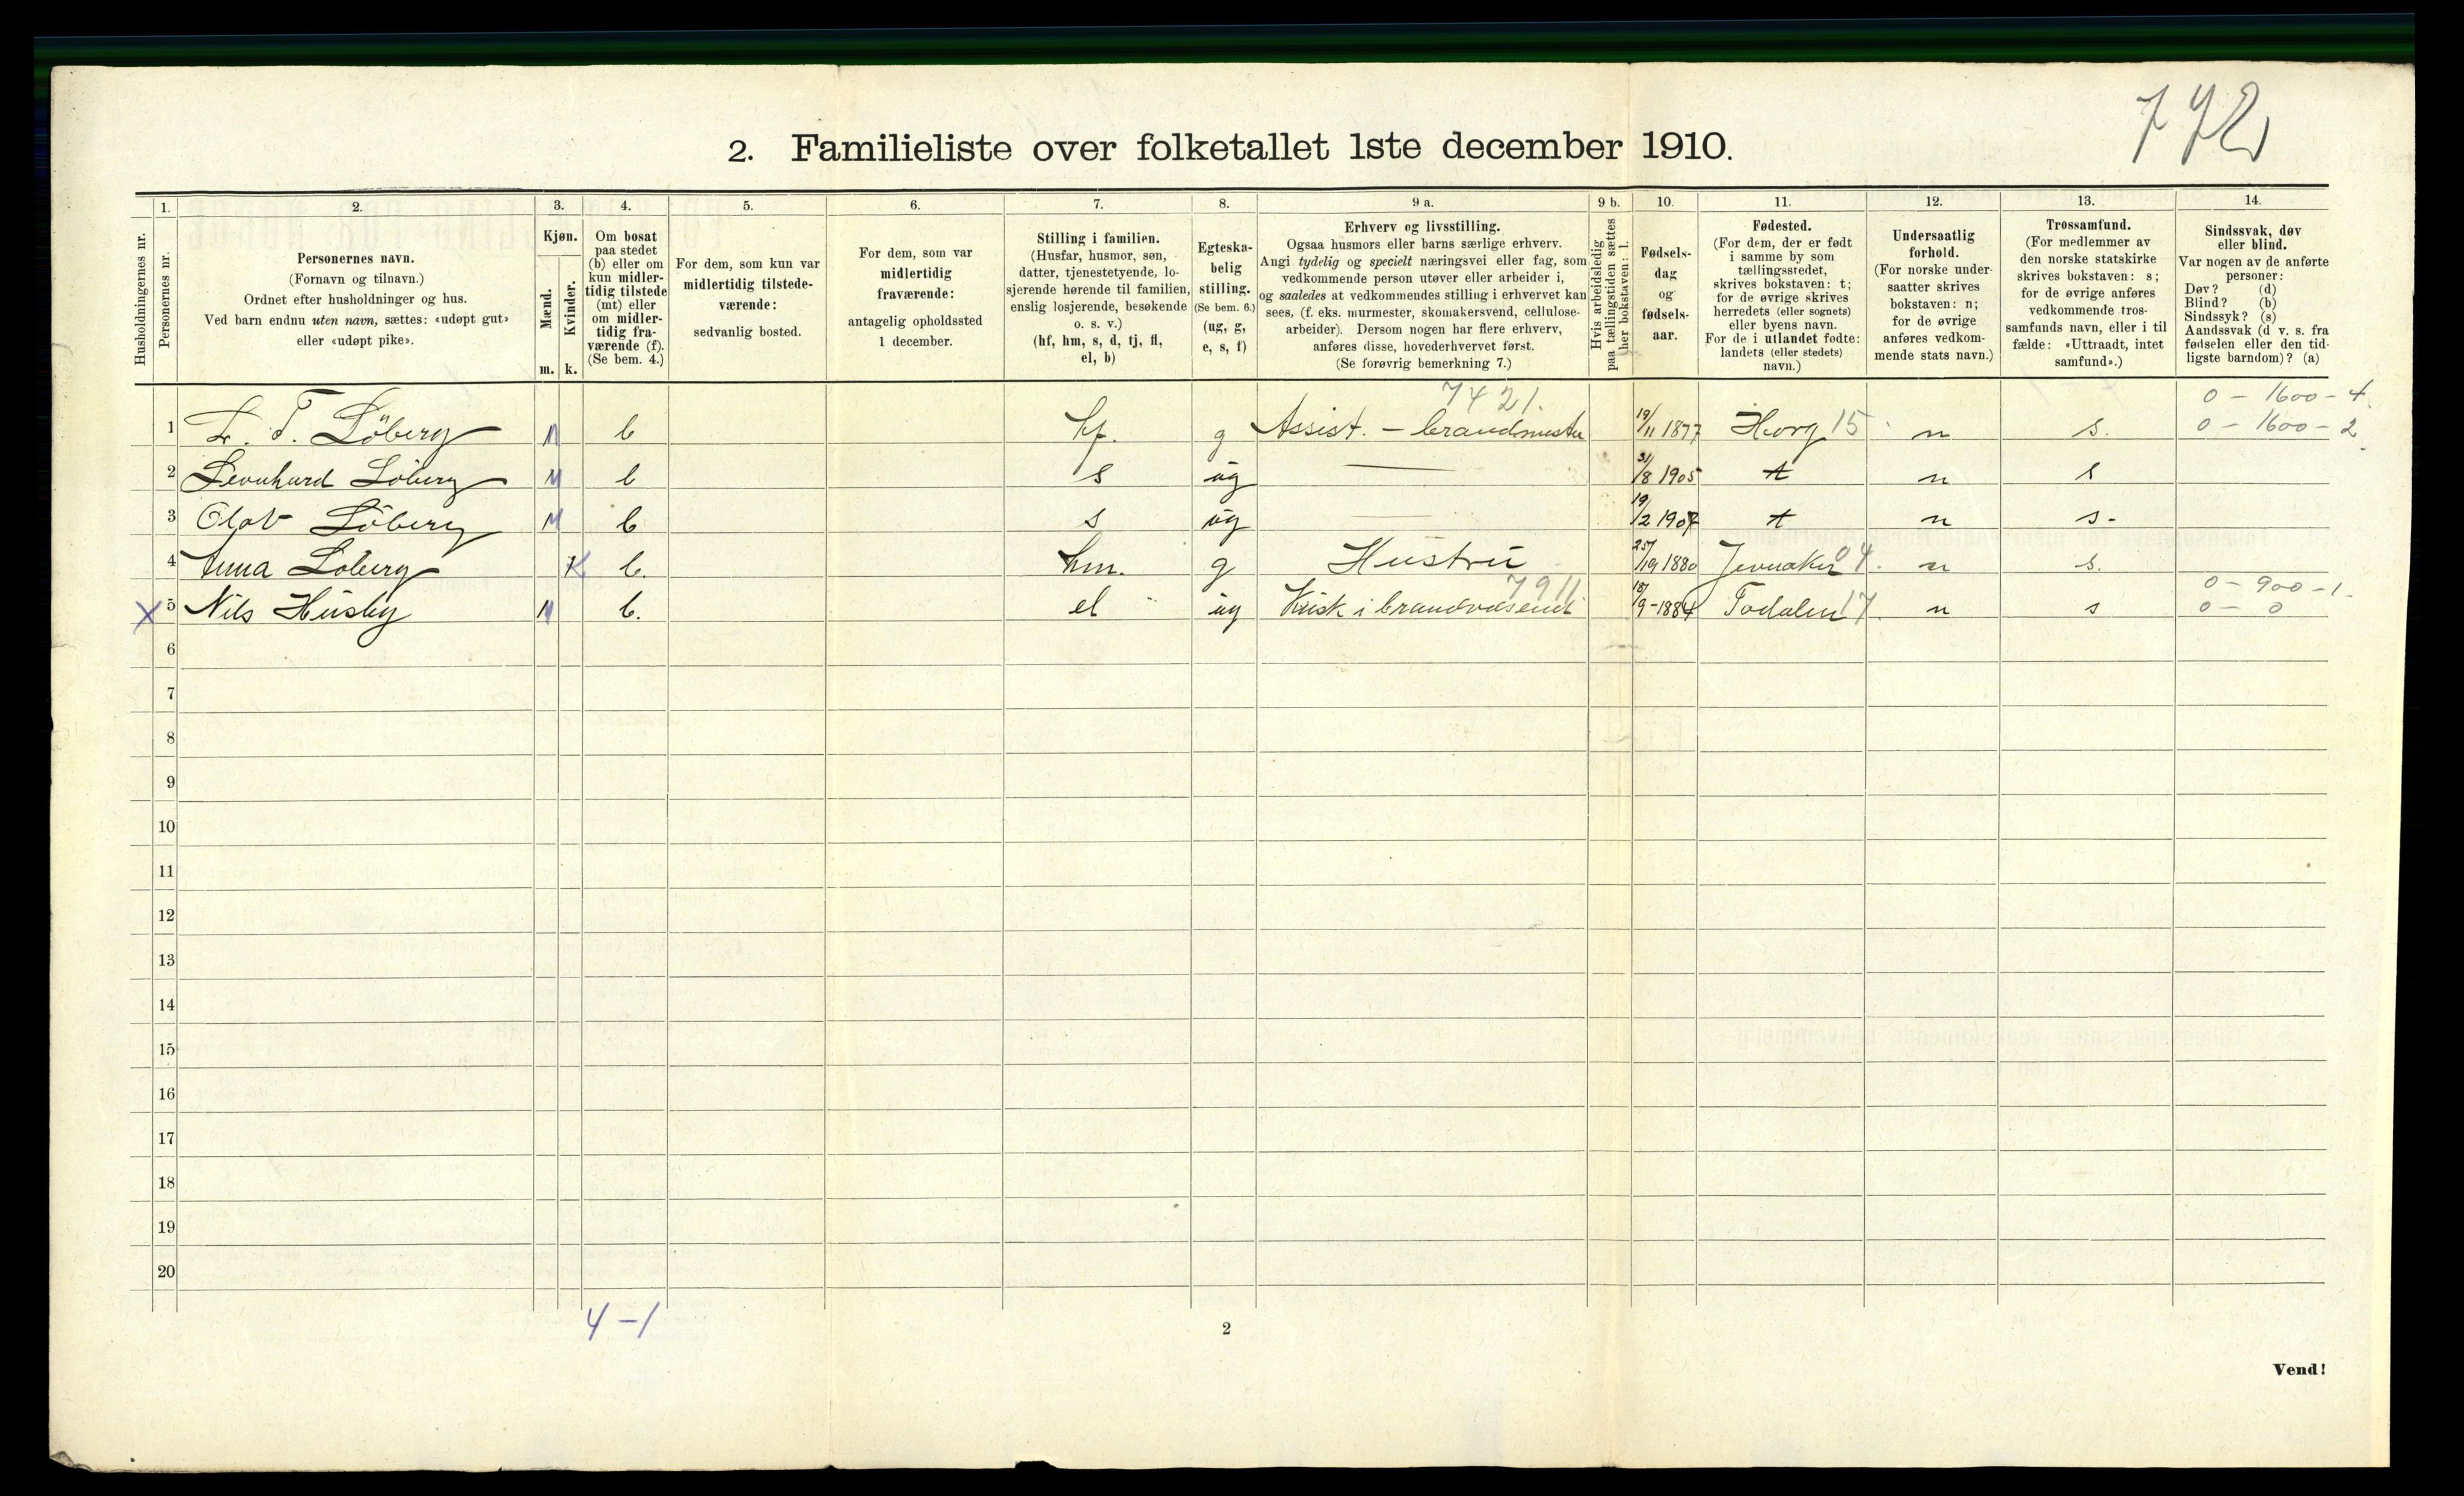 772
2. Familieliste over folketallet 1ste december 1910.
Husholdningernes nr.
1.
Personernes nr.
2.
Personernes navn.
(Fornavn og tilnavn.)
Ordnet efter husholdninger og hus.
Ved barn endnu uten navn, sættes: «udøpt gut»
eller «udøpt pike».
3.
Kjøn.
Mænd.
Kvinder.
m. k.
4.
Om bosat
paa stedet
(b) eller om
kun midler-
tidig tilstede
(mt) eller
om midler-
tidig fra-
værende (f).
(Se bem. 4.)
5.
For dem, som kun var
midlertidig tilstede-
værende:
sedvanlig bosted.
6.
For dem, som var
midlertidig
fraværende:
antagelig opholdssted
1 december.
7.
Stilling i familien.
(Husfar, husmor, søn,
datter, tjenestetyende, lo-
sjerende hørende til familien,
enslig losjerende, besøkende
o. s. v.)
(hf, hm, s, d, tj, fl,
el, b)
8.
Egteska-
belig
stilling.
(Se bem. 6.)
(ug, g,
e, s, f)
9 a.
Erhverv og livsstilling.
Ogsaa husmors eller barns særlige erhverv.
Angi tydelig og specielt næringsvei eller fag, som
vedkommende person utøver eller arbeider i,
og saaledes at vedkommendes stilling i erhvervet kan
sees, (f. eks. murmester, skomakersvend, cellulose-
arbeider). Dersom nogen har flere erhverv,
anføres disse, hovederhvervet først.
(Se forøvrig bemerkning 7.)
9 b.
Hvis arbeidsledig
paa tællingstiden sættes
her bokstaven: l.
10.
Fødsels-
dag
og
fødsels-
aar.
11.
Fødested.
(For dem, der er født
i samme by som
tællingsstedet,
skrives bokstaven: t;
for de øvrige skrives
herredets (eller sognets)
eller byens navn.
For de i utlandet fødte:
landets (eller stedets)
navn.)
12.
Undersaatlig
forhold.
(For norske under-
saatter skrives
bokstaven: n;
for de øvrige
anføres vedkom-
mende stats navn.)
13.
Trossamfund.
(For medlemmer av
den norske statskirke
skrives bokstaven: s;
for de øvrige anføres
vedkommende tros-
samfunds navn, eller i til
fælde: «Uttraadt, intet
samfund».)
14.
Sindssvak, døv
eller blind.
Var nogen av de anførte
personer:
Døv? (d)
Blind? (b)
Sindssyk? (s)
Aandssvak (d v. s. fra
fødselen eller den tid-
ligste barndom)? (a)
7421. 0 - 1600 - 4
1 L. T. Löberg M b hf. g Assist. - brandmester 19/11 1877 Horg 15 n s. 0 - 1600 - 2
2 Leonhard Löberg M b s ug — 31/8 1905 t n s
3 Olav Löberg M b s ug — 19/2 1907 t n s-
4 Anna Löberg K b. hm. g Hustru 1880 Jevnaker 04. n s.
7911 0 - 900 - 1.
X 5 Nils Husby M b. el ug Kusk i brandvæsenet /9-1884 Todalen 17. n s 0 - 0
6
7
8
9
10
11
12
13
14
15
16
17
18
19
20
4-1
2
Vend!